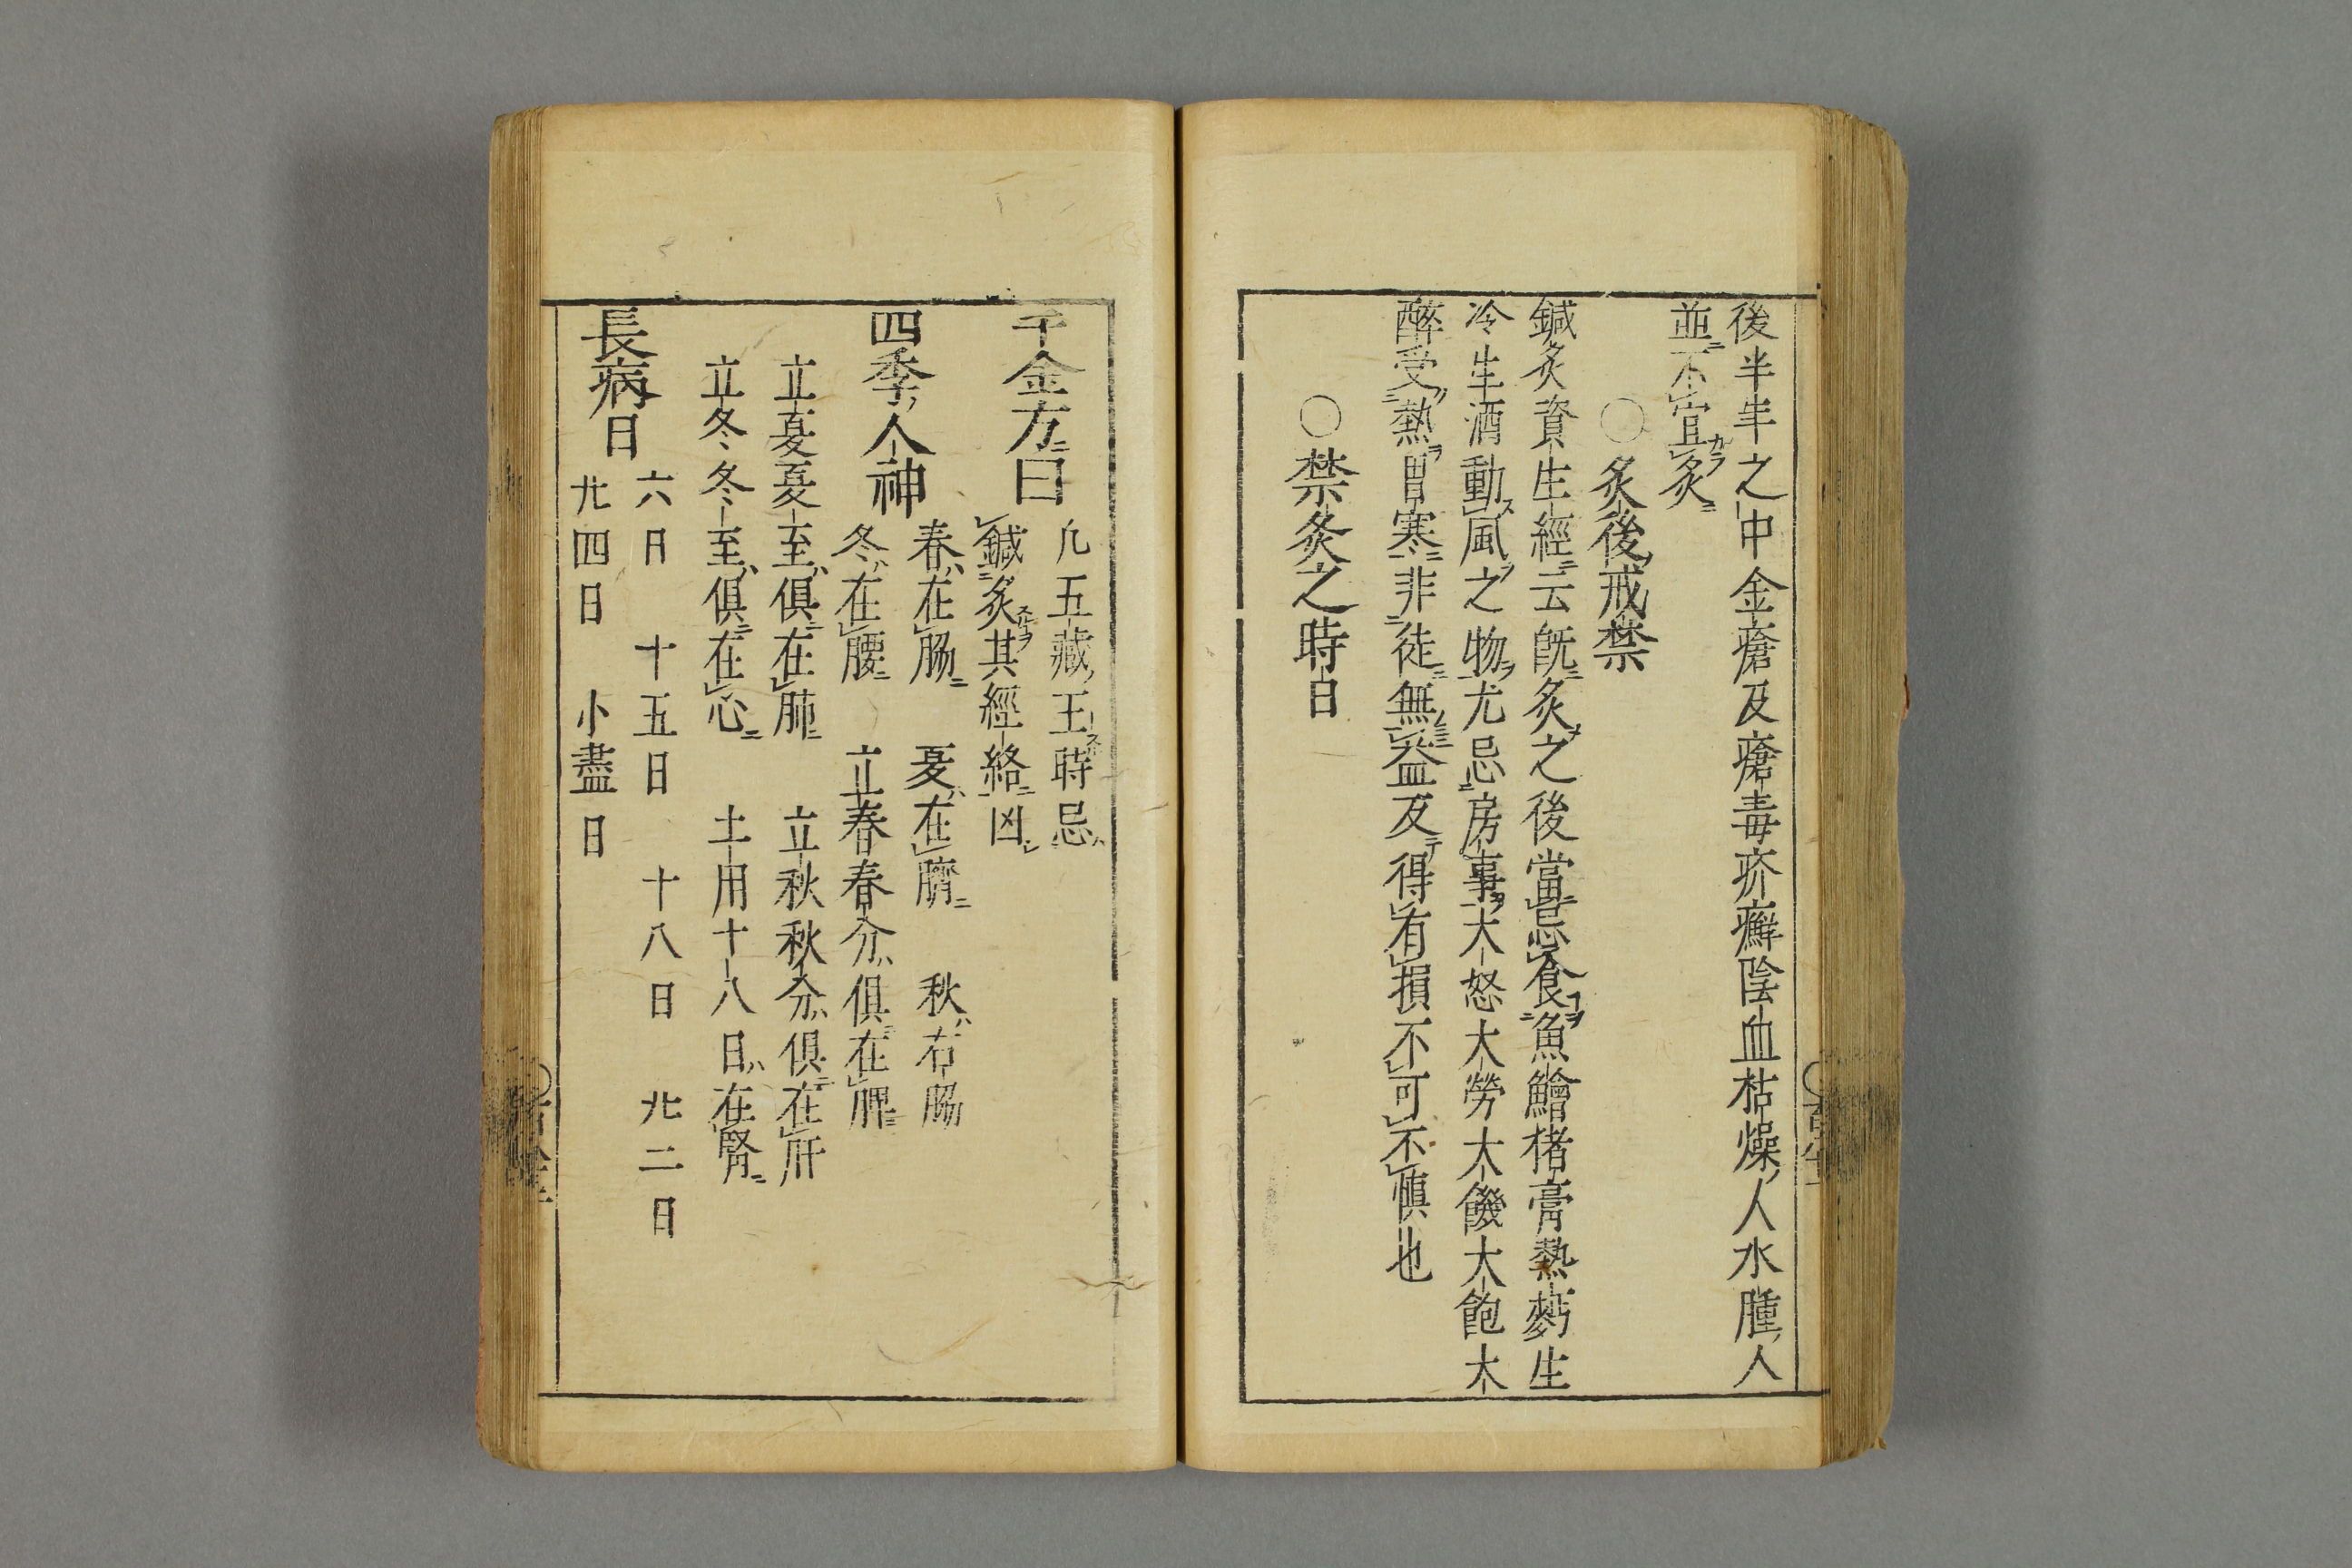 後半年之中金瘡及瘡毒疥癬陰血枯燥人水腫人
並不宜灸
○灸後戒禁
鍼灸資生經云既灸之後當忌食魚鱠猪膏熱麪生
冷生酒動風之物尤忌房事大怒大勞大饑大飽大
醉受熱冒寒非徒無益反得有損不可不慎也
○禁灸之時日
千金方曰 凢五藏王時忌
鍼灸其經絡凶
四季人神 春在膓 夏在臍 秋右膓
冬在腰 立春春分俱在脾
立夏夏至俱在肺 立秋秋分俱在肝
立冬冬至俱在心 土用十八日在腎
長病日 六日 十五日 十八日 廿二日
廿四日 小盡日